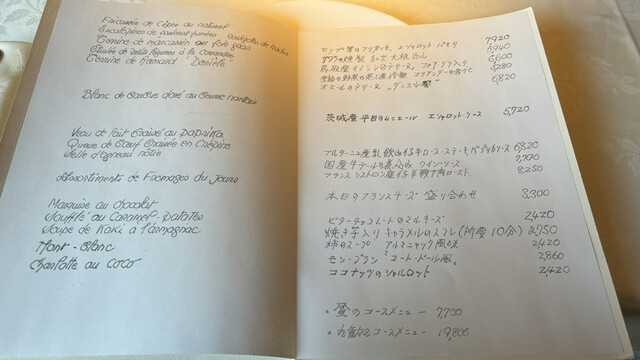 Fricassée de Cèpes au naturel
Escalopines de saumon fumées
Terrine de marcassin au foie gras
Étuvée de petits légumes à la coriandre
Terrine de homard "Danièle"
Blanc de doré au beurre nantais
Veau de lait braisé au paprika
Queue de bœuf braisée en Crépine
Selle d'agneau rôtie
Assortiments de Fromages du Jours
Marquise au chocolat
Soufflé au caramel-patates
Soupe de Kaki à l'armagnac
Mont-Blanc
Charlotte au coco
セップ茸のフリカッセ エシャロット パセリ 7,920
の燻製 大根 5,940
鳥取産イノシシのテリーヌ フォアグラ入り 6,600
季節の野菜の蒸し煮 冷製 コリアンダーの香りで 5,280
オマールのテリーヌ "ダニエル風" 6,820
茨城産 平目のムニエル エシャロットソース 5,720
ブルターニュ産乳飲み仔牛ロースステーキ パプリカソース 6,820
国産牛テールの煮込み ワインソース 7,700
フランス シストロン産仔羊鞍下肉ロースト 8,250
本日のフランスチーズ 盛り合わせ 3,300
ビターチョコレートのマルキーズ 2,420
焼き芋入りキャラメルのスフレ(所要10分) 2,750
柿のスープ アルマニャック風味 2,420
モン・ブラン "コート・ドール風" 2,860
ココナッツのシャルロット 2,420
• 昼のコースメニュー 7,700
• コースメニュー 19,800